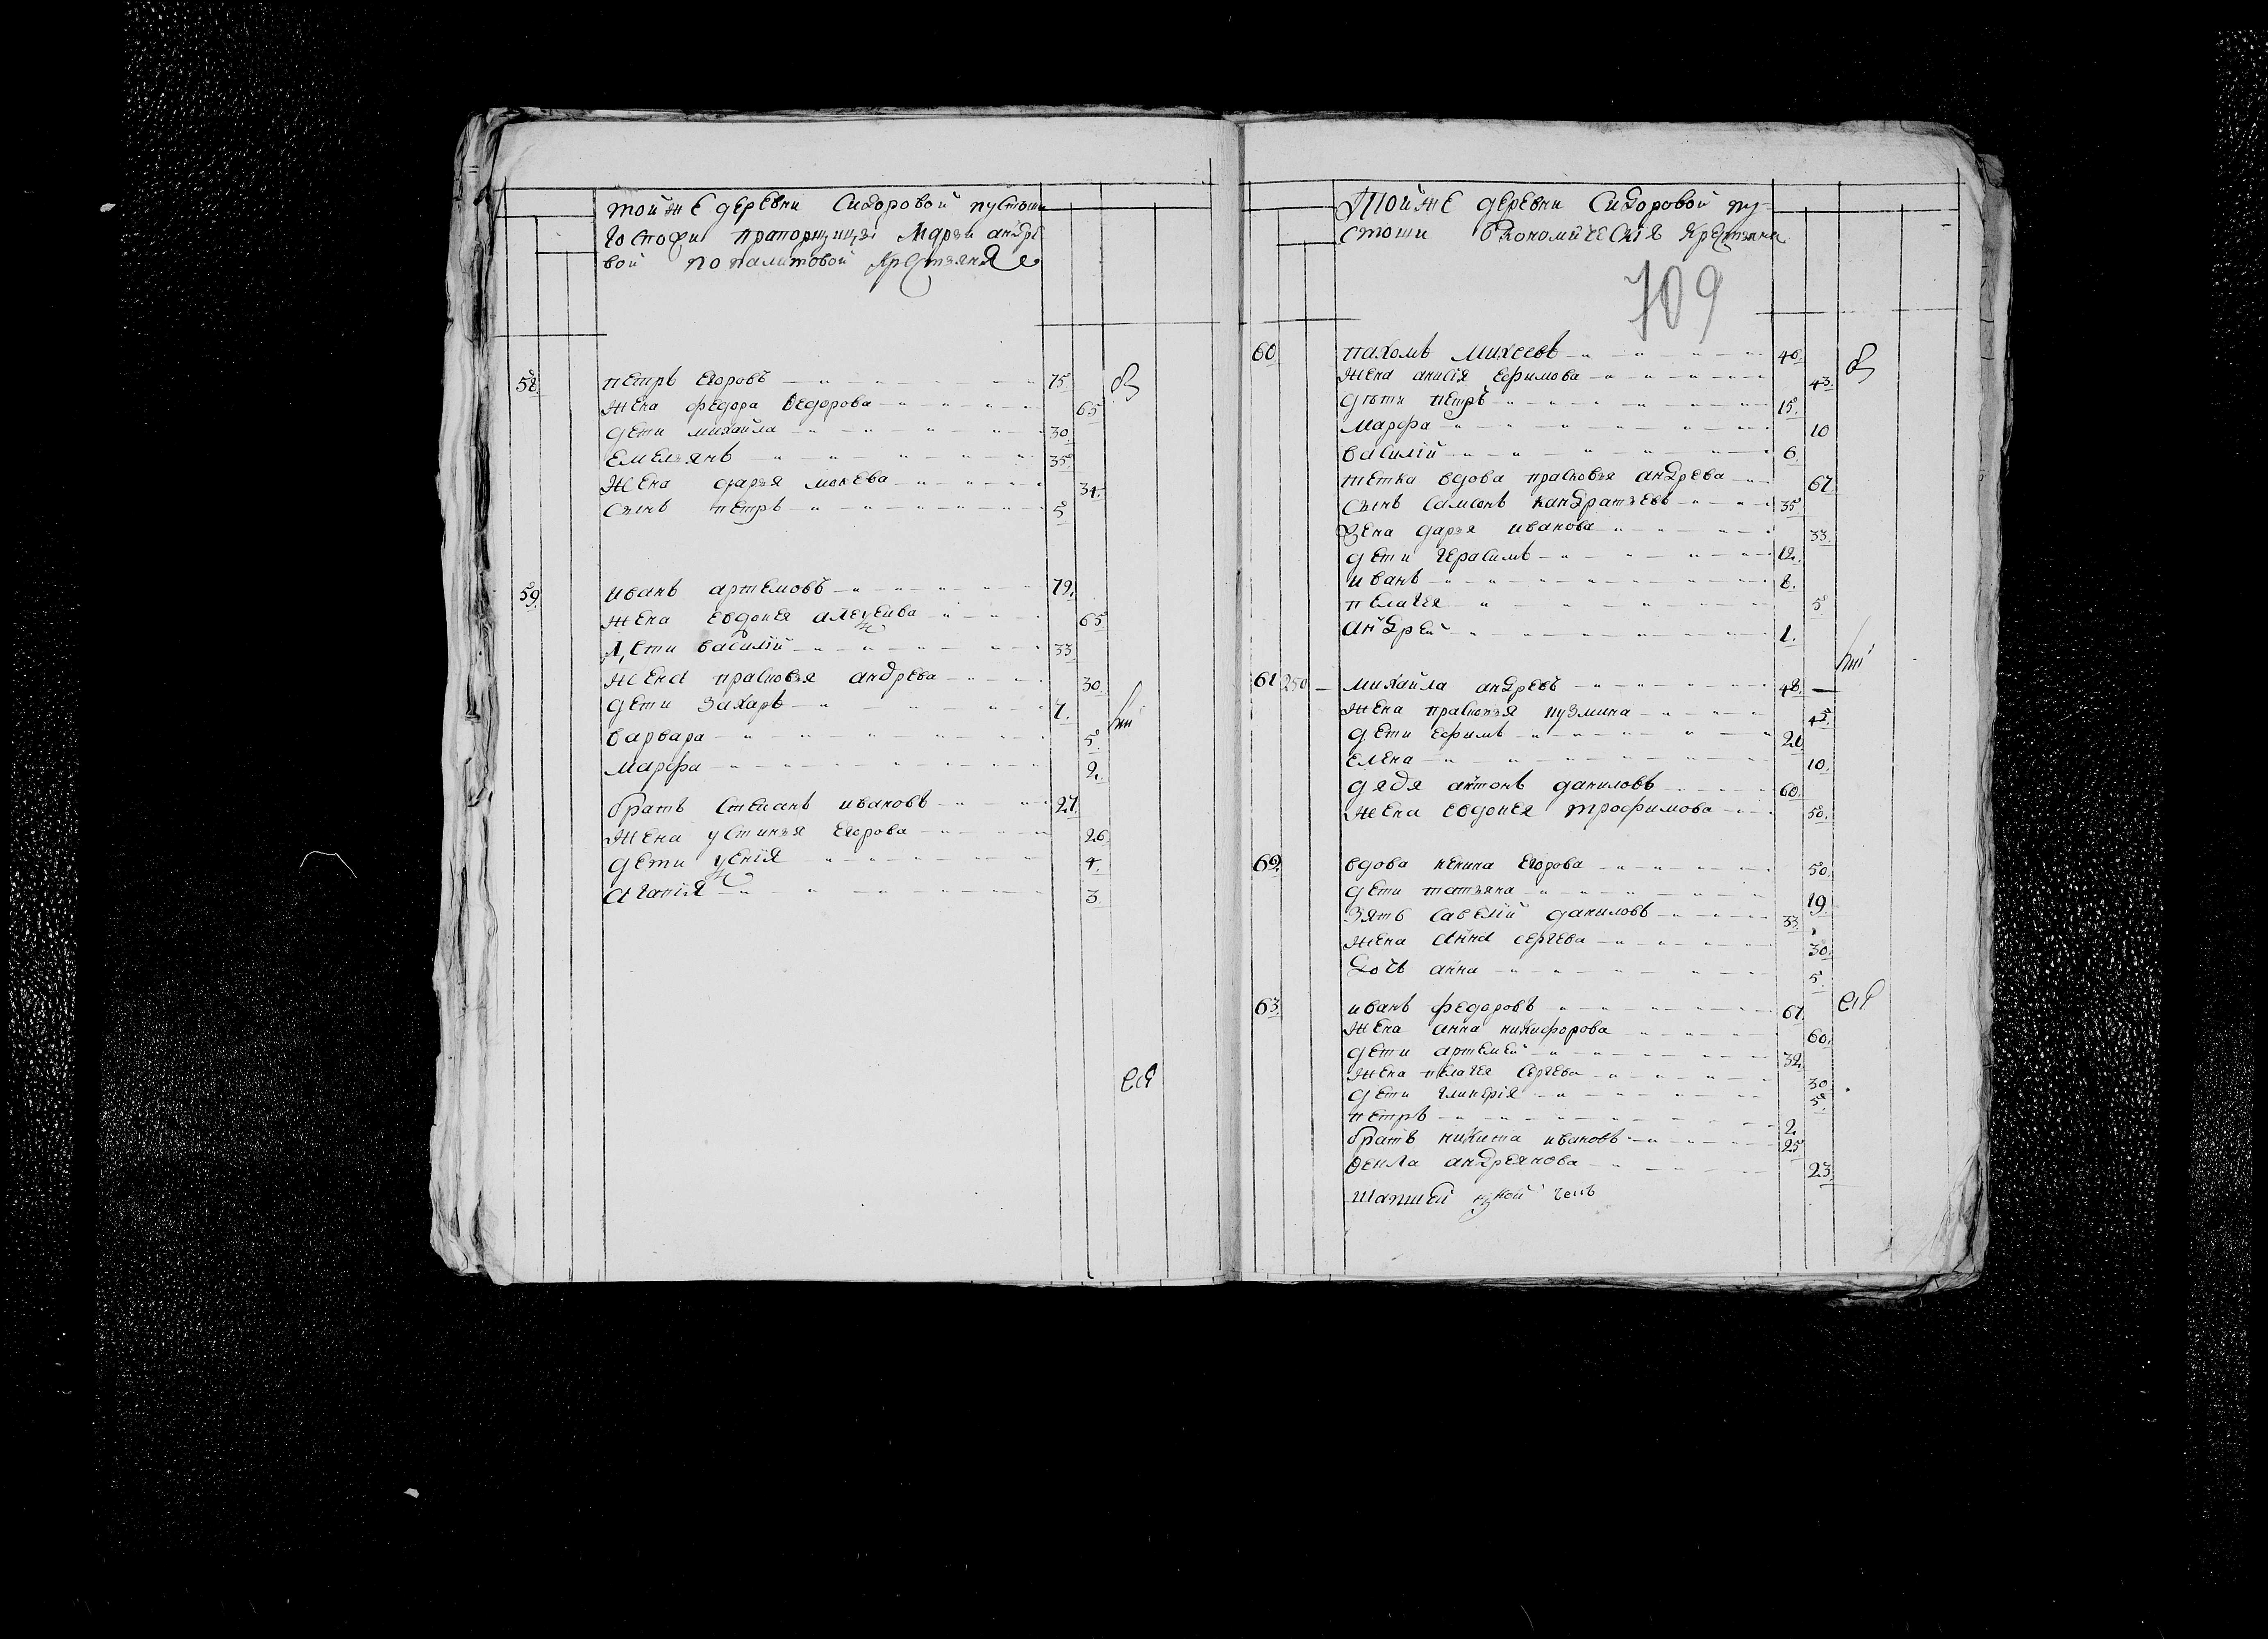 той же деревни Сидоровой пустоши
Госпожи прапорщицы Марьи андре
вой Попалитовой крестьяне
58. петръ Егоровъ 75
жена федора Ѳедорова 65
дети михаила 30.
Емельянъ 35.
жена дарья мокева 34.
сынъ петръ 5
59. иванъ артемовъ 79.
жена Евдокея алеѯеива 65
Дети василiй 33
жена прасковья андрева 30
дети захаръ 7.
варвара 5.
марфа 2.
братъ степанъ ивановъ 27.
жена устинья Егорова 26
дети ѯенiя 4.
агапiя 3.
въ
кон
ей
Той же деревни Сидоровой пу-
стоши Економическiя крестьяна
709
60 пахомъ михеевъ 46.
жена анисiя ефимова 43.
дѣти петръ 15.
марфа 10
василiй 6.
тетка вдова прасковья андрева 67.
сынъ самсонъ кандратьевъ 35
жена дарья иванова 33.
дети герасимъ 12.
иванъ 8.
пелагея 5
андрей 1.
61 250 михайла андревъ 48.
жена прасковья кузмина 45.
дети ефимъ 20
елена 10.
дядя антонъ даниловъ 60.
жена Евдокея трофимова 50.
62. вдова ненина Егорова 50.
дети татьяна 19
зять савелiй даниловъ 33
жена анна сергева 30.
дочь анна 5.
63 иванъ федоровъ 67.
жена анна никифорова 60.
дети артемей 32.
жена пелагея Сергева 30
дети гликерiя 5.
петръ 2.
братъ никита ивановъ 25
Ѳекла андреянова 23.